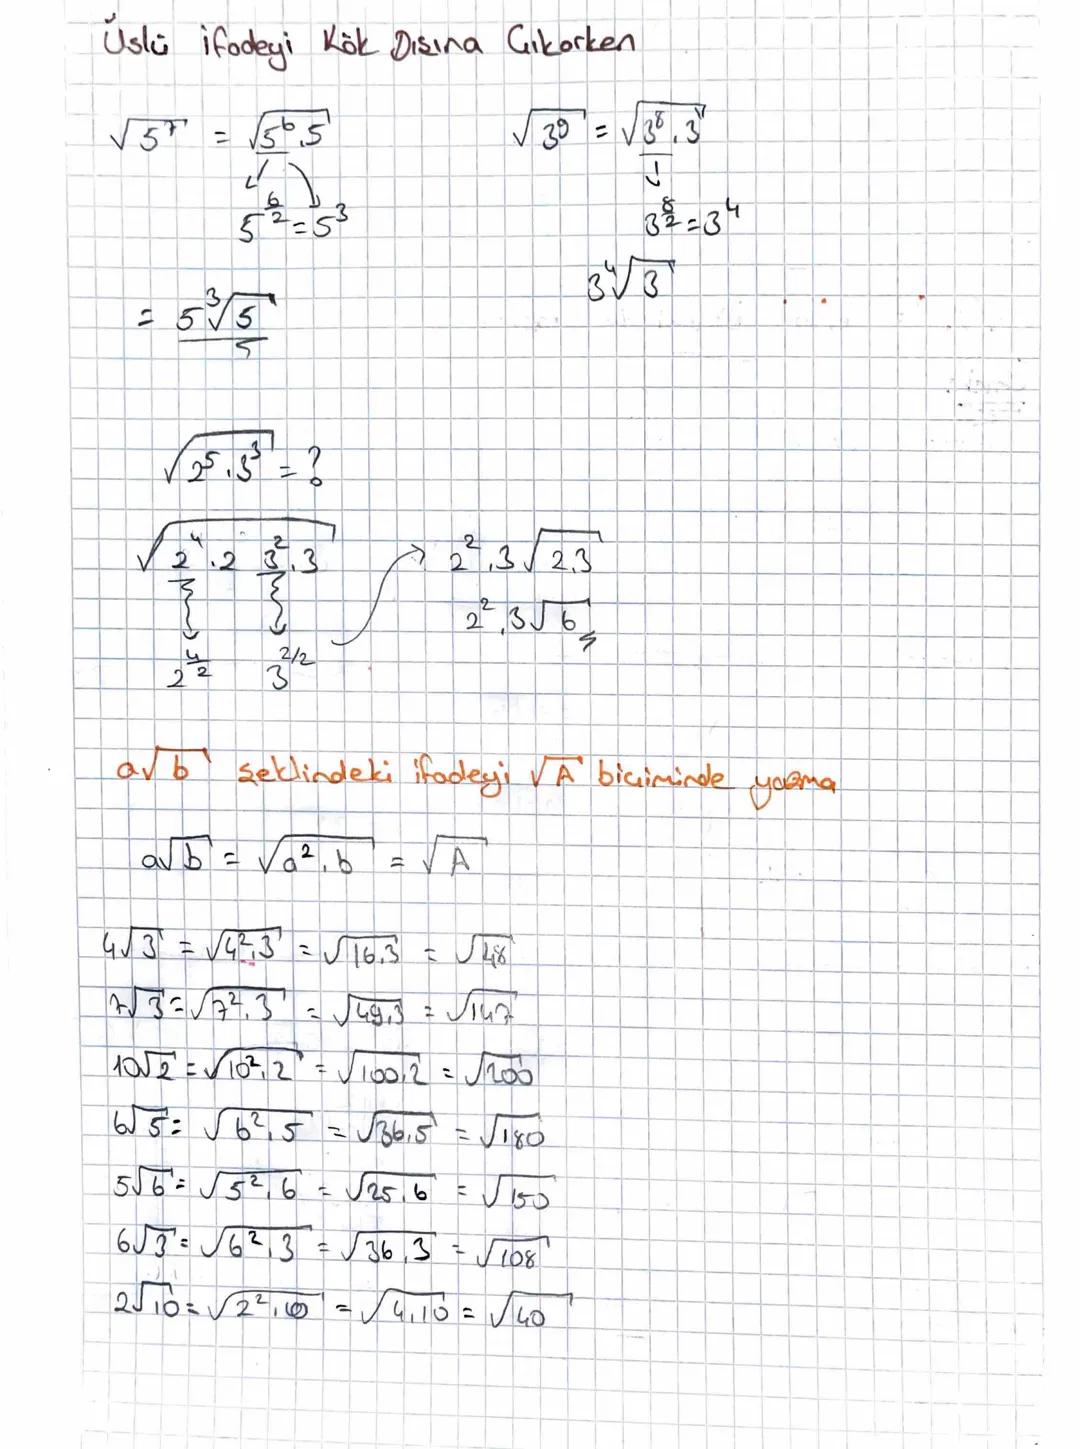 Üslü ifadeyi Kök Dışına Çıkarken
√5⁷ = √5⁶.5
5^(6/2) = 5³
= 5³√5
√3⁹ = √3⁸.3¹
3^(8/2) = 3⁴
3⁴√3
√2⁵.3³ = ?
√2⁴.2 3².3
2^(4/2) 3^(2/2)
2².3√2.3
2².3√6
a√b şeklindeki ifadeyi √A biçiminde yazma
a√b = √a².b = √A
4√3 = √4².3 = √16.3 = √48
7√3 = √7².3 = √49.3 = √147
10√2 = √10².2 = √100.2 = √200
6√5 = √6².5 = √36.5 = √180
5√6 = √5².6 = √25.6 = √150
6√3 = √6².3 = √36.3 = √108
2√10 = √2².10 = √4.10 = √40